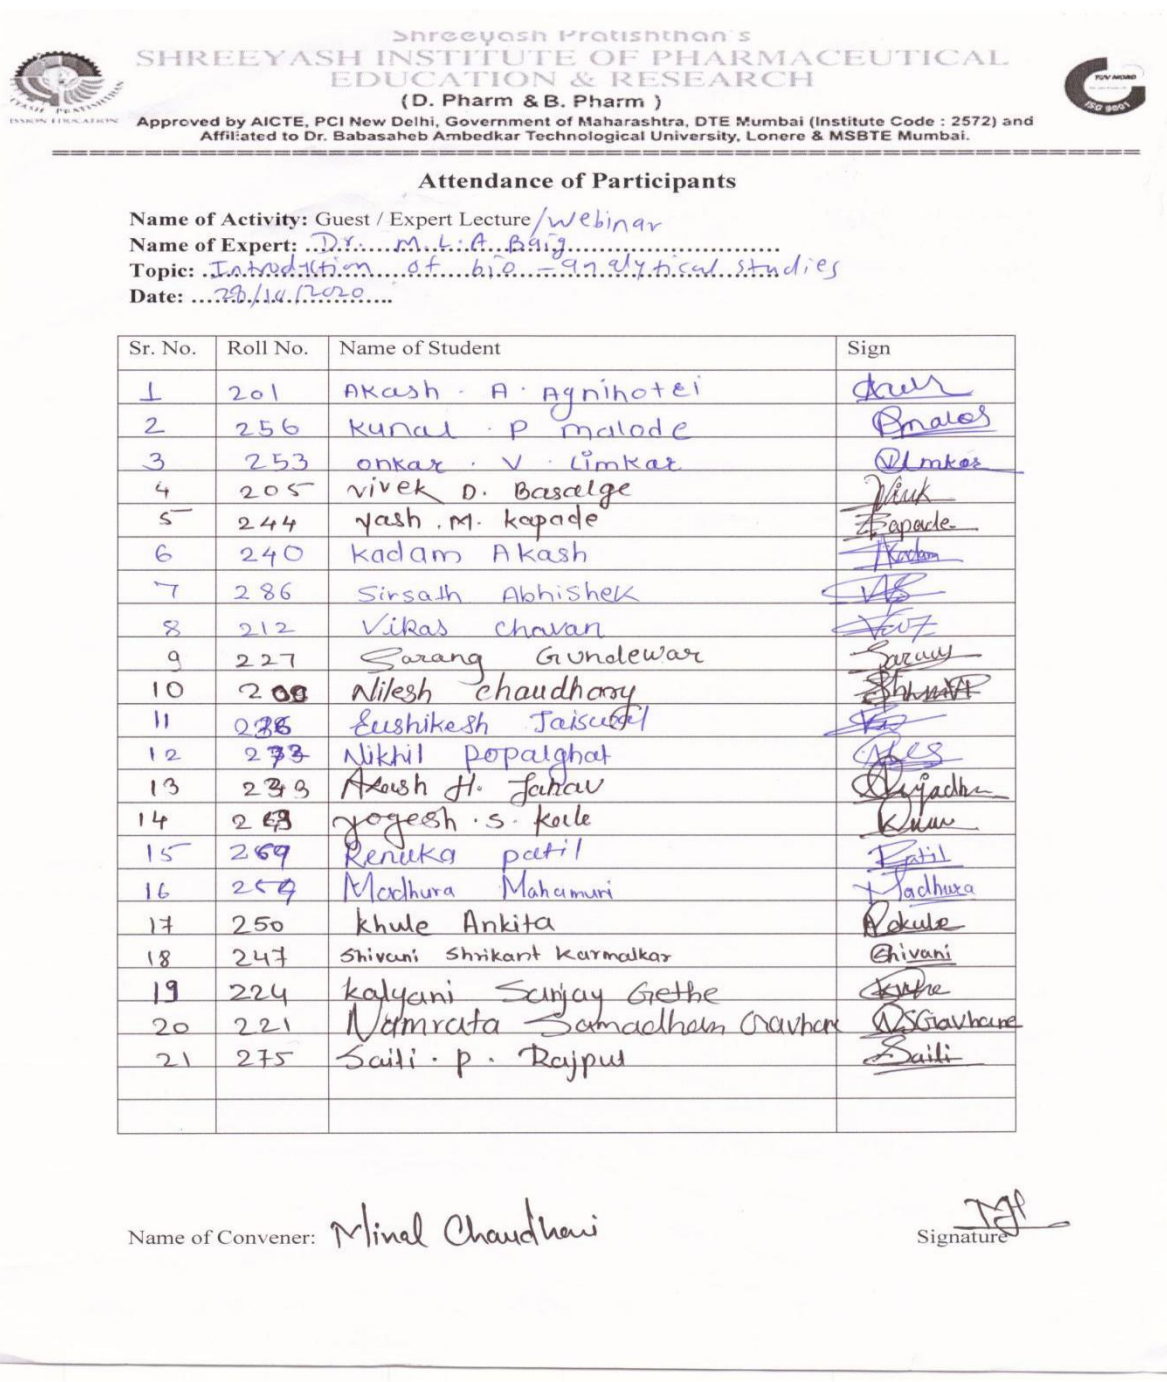 Shreeyash Pratishthan's
SHREEYASH INSTITUTE OF PHARMACEUTICAL
EDUCATION & RESEARCH
(D. Pharm & B. Pharm )
Approved by AICTE, PCI New Delhi, Government of Maharashtra, DTE Mumbai (Institute Code : 2572) and
Affiliated to Dr. Babasaheb Ambedkar Technological University, Lonere & MSBTE Mumbai.
TUV NORD
ISO 9001
Attendance of Participants
Name of Activity: Guest / Expert Lecture/Webinar
Name of Expert: Dr. M. L. A. Baig
Topic: Introduction of bio-analytical studies
Date: /2020
Sr. No. Roll No. Name of Student Sign
1 201 Akash . A . Agnihotri
2 256 Kunal . P malode
3 253 onkar . V . Limkar Limkar
4 205 vivek D. Basalge Vivek
5 244 Yash . M. Kapade Kapade
6 240 Kadam Akash Kadam
7 286 Sirsath Abhishek
8 212 Vikas Chavan
9 227 Sarang Gundewar Sarang
10 Nilesh Chaudhary
11
12 Nikhil Popalghat
13 Akash H.
14 Yogesh . S.
15 269 Renuka patil Patil
16 Madhura Mahamuni Madhura
17 250 Khule Ankita
18 247 Shivani Shrikant Karmalkar Shivani
19 224 Kalyani Sanjay Gethe
20 221 Namrata Samadhan Gavhane NSGavhane
21 275 Saili . P . Rajput Saili
Name of Convener: Minal Chaudhari Signature